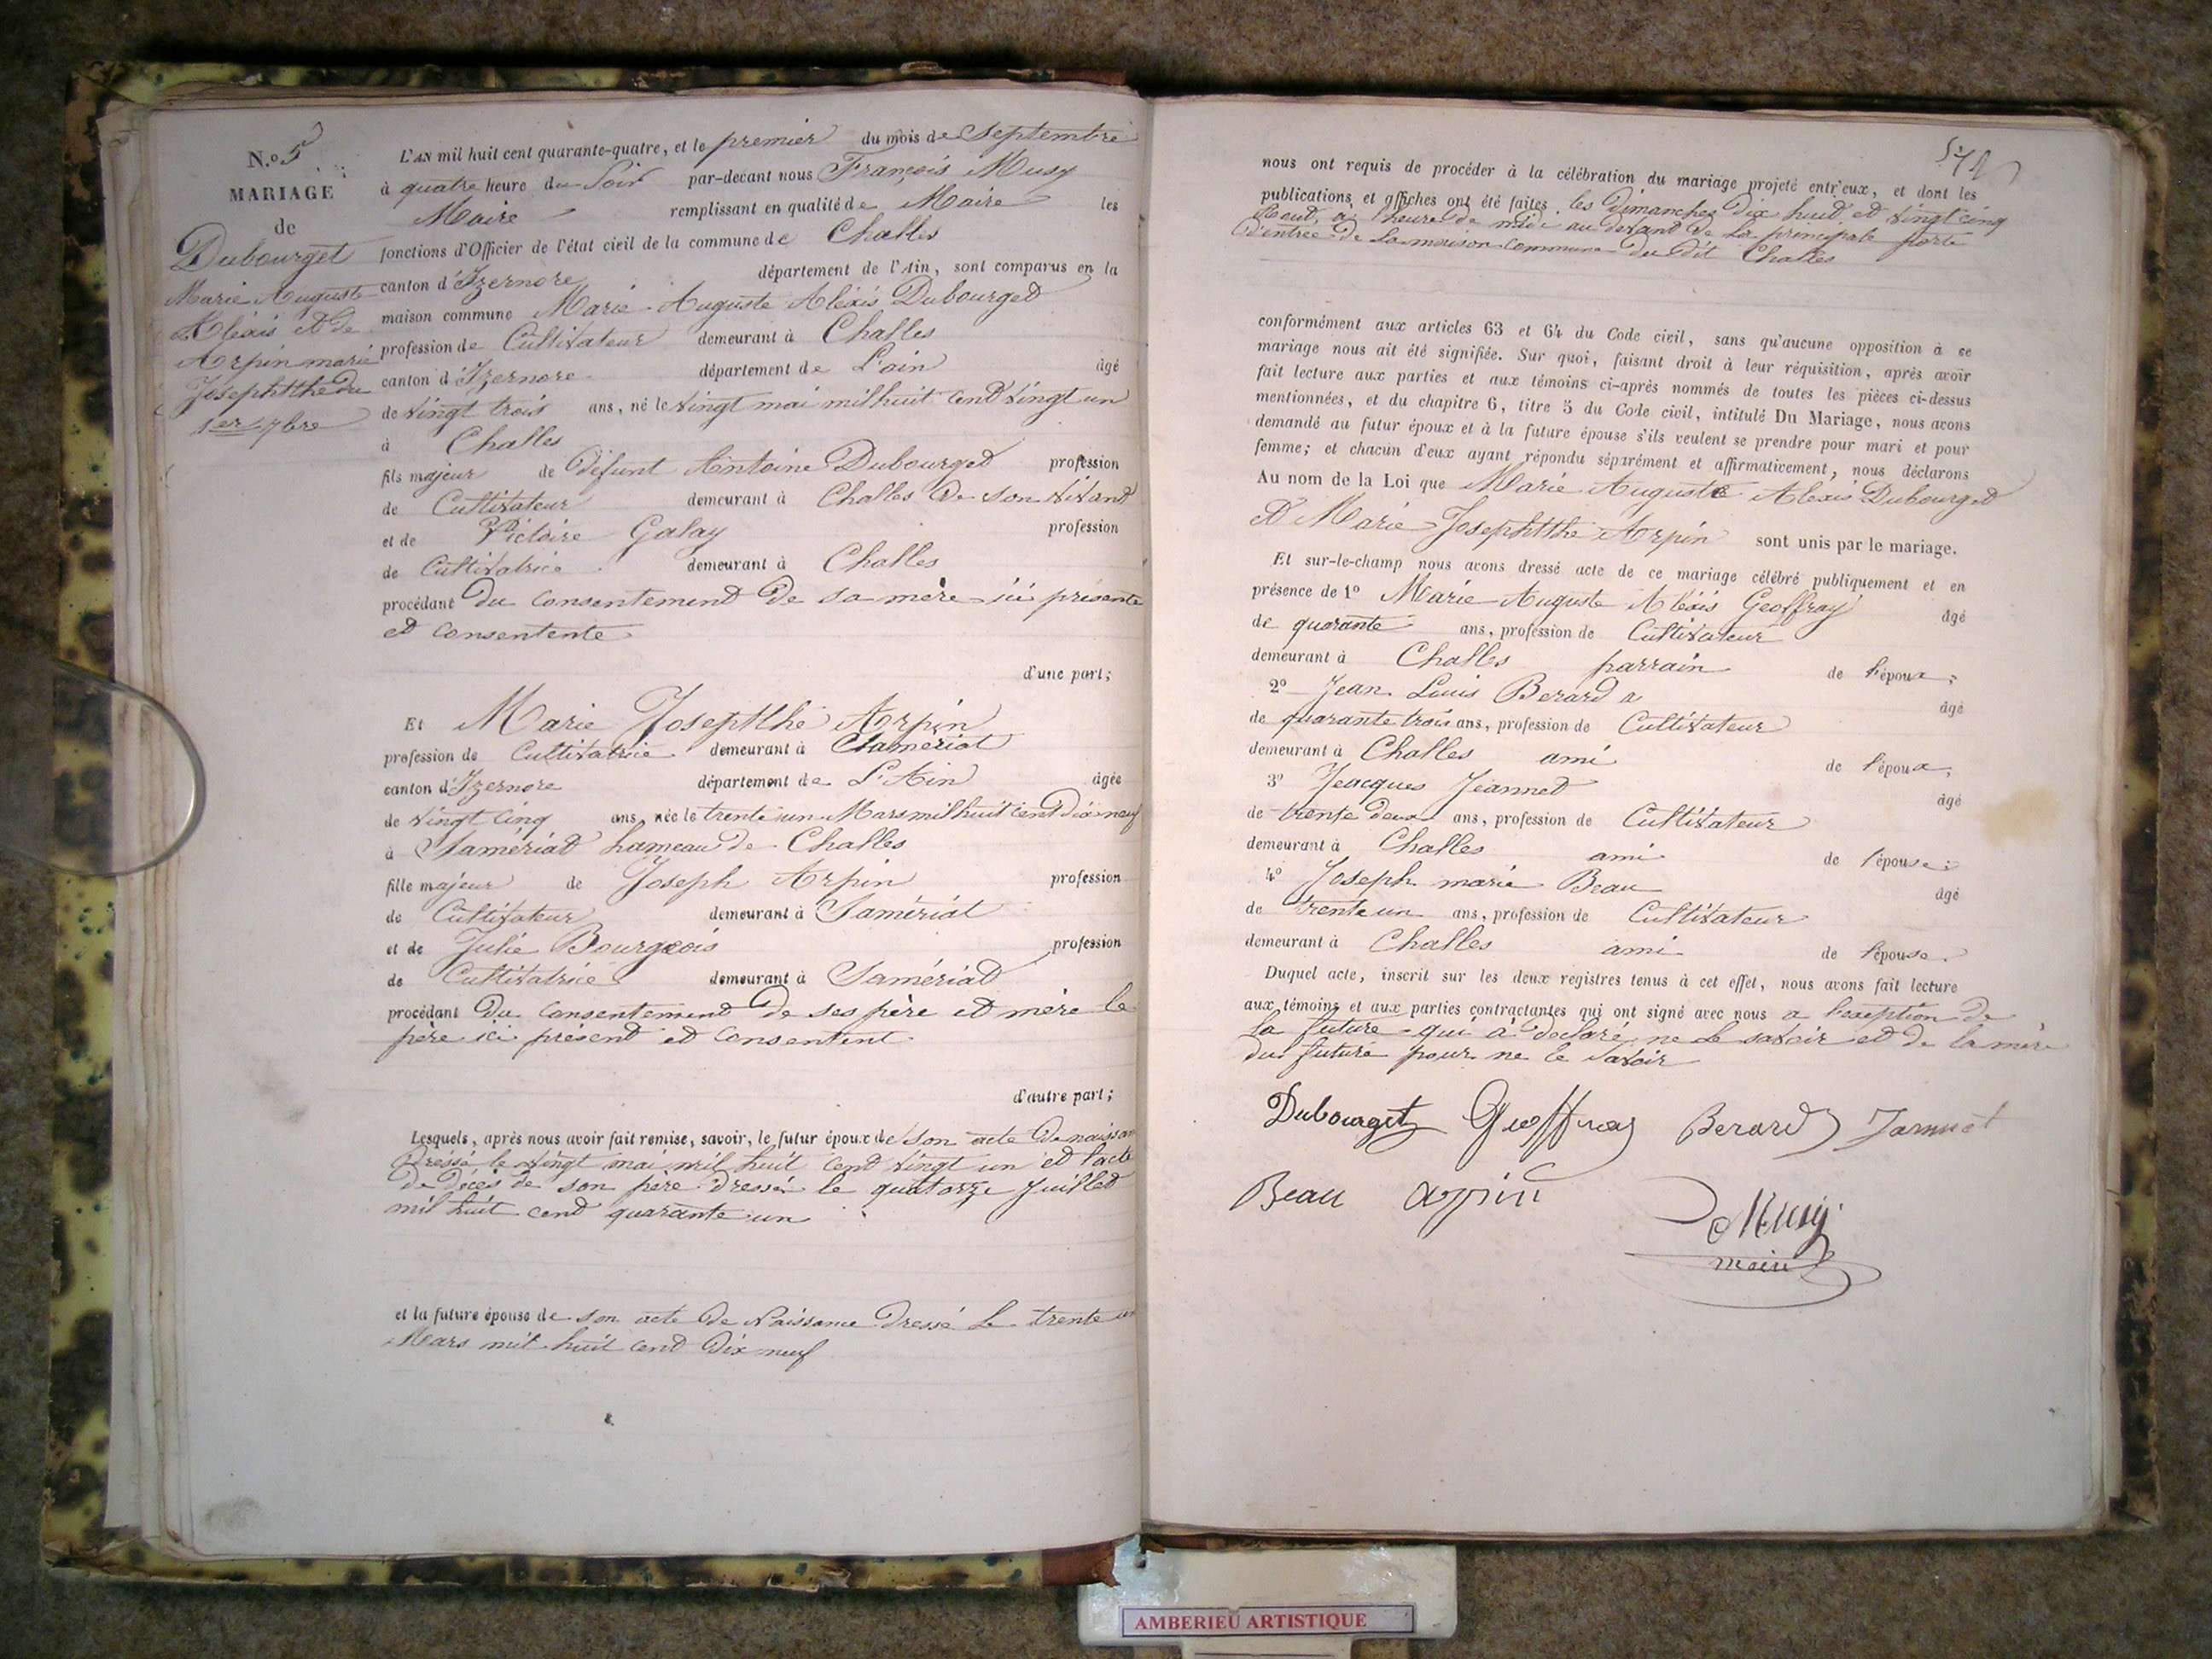 N.o 5
MARIAGE
de
Dubourget
Marie Auguste
Aléxis et de
Arpin marie
Josephtthe du
1er 7bre
L'AN mil huit cent quarante-quatre, et le premier du mois de Septembre
à quatre heure du Soir par-devant nous François Musy
Maire remplissant en qualité de Maire les
fonctions d'Officier de l'état civil de la commune de Challes
canton d'Izernore département de l'Ain, sont comparus en la
maison commune Marie Auguste Aléxis Dubourget
profession de Cultivateur demeurant à Challes
canton d'Izernore département de L'ain âgé
de vingt trois ans, né le vingt mai mil huit cent vingt un
à Challes
fils majeur de défunt Antoine Dubourget profession
de Cultivateur demeurant à Challes de son vivant
et de Victoire Galay profession
de Cultivatrice demeurant à Challes
procédant du consentement de sa mère ici présente
et consentente
d'une part;
Et Marie Josephtthe Arpin
profession de Cultivatrice demeurant à Samériat
canton d'Izernore département de L'Ain âgée
de vingt cinq ans, née le trente un Mars mil huit cent dix neuf
à Samériat hameau de Challes
fille majeur de Joseph Arpin profession
de Cultivateur demeurant à Samériat
et de Julie Bourgeois profession
de Cultivatrice demeurant à Samériat
procédant du consentement de ses père et mère le
père ici présent et consentent
d'autre part;
Lesquels, après nous avoir fait remise, savoir, le futur époux de son acte de naissan
dressé le vingt mai mil huit cent vingt un et l'acte
de décès de son père dressé le quatorze Juillet
mil huit cent quarante un
et la future épouse de son acte de Naissance dressé le trente un
Mars mil huit cent dix neuf
nous ont requis de procéder à la célébration du mariage projeté entr'eux, et dont les
publications et affiches ont été faites les dimanches dix huit et vingt cinq
Aout, à l'heure de midi au devant de la principale porte
d'entrée de la maison commune du dit Challes
conformément aux articles 63 et 64 du Code civil, sans qu'aucune opposition à ce
mariage nous ait été signifiée. Sur quoi, faisant droit à leur réquisition, après avoir
fait lecture aux parties et aux témoins ci-après nommés de toutes les pièces ci-dessus
mentionnées, et du chapitre 6, titre 5 du Code civil, intitulé Du Mariage, nous avons
demandé au futur époux et à la future épouse s'ils veulent se prendre pour mari et pour
femme; et chacun d'eux ayant répondu séparément et affirmativement, nous déclarons
Au nom de la Loi que Marie Auguste Aléxis Dubourget
et Marie Josephtthe Arpin sont unis par le mariage.
Et sur-le-champ nous avons dressé acte de ce mariage célébré publiquement et en
présence de 1o Marie Auguste Aléxis Geoffray âgé
de quarante ans, profession de Cultivateur
demeurant à Challes parrain de l'époux;
2o Jean Louis Berard a âgé
de quarante trois ans, profession de Cultivateur
demeurant à Challes ami de l'époux;
3o Jeacques Jeannet âgé
de trente deux ans, profession de Cultivateur
demeurant à Challes ami de l'épouse;
4o Joseph marie Beau âgé
de trente un ans, profession de Cultivateur
demeurant à Challes ami de l'épouse.
Duquel acte, inscrit sur les deux registres tenus à cet effet, nous avons fait lecture
aux témoins et aux parties contractantes qui ont signé avec nous a l'exeption de
la future qui à déclaré ne le savoir et de la mère
du future pour ne le savoir
Dubourget Geoffray Berard Jannet
Beau arpin
Musy
maire
AMBERIEU ARTISTIQUE